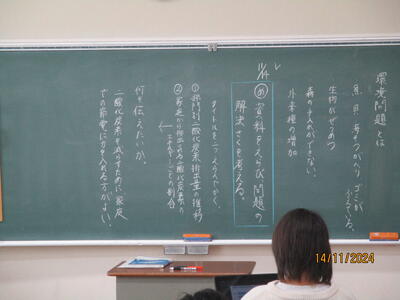 環境問題とは
生物がぜつめつ
森の手入れができない。
外来種の増加
11/14
め 資料をえらび問題の
解決さくを考える。
タイトルを二つえらんでかく。
① 部門別二酸化炭素排出量の推移
② 家庭から排出される二酸化炭素の
何を伝えたいか、
二酸化炭素を減らすために家庭
での節電に力を入れる方がよい。
14/11/2024